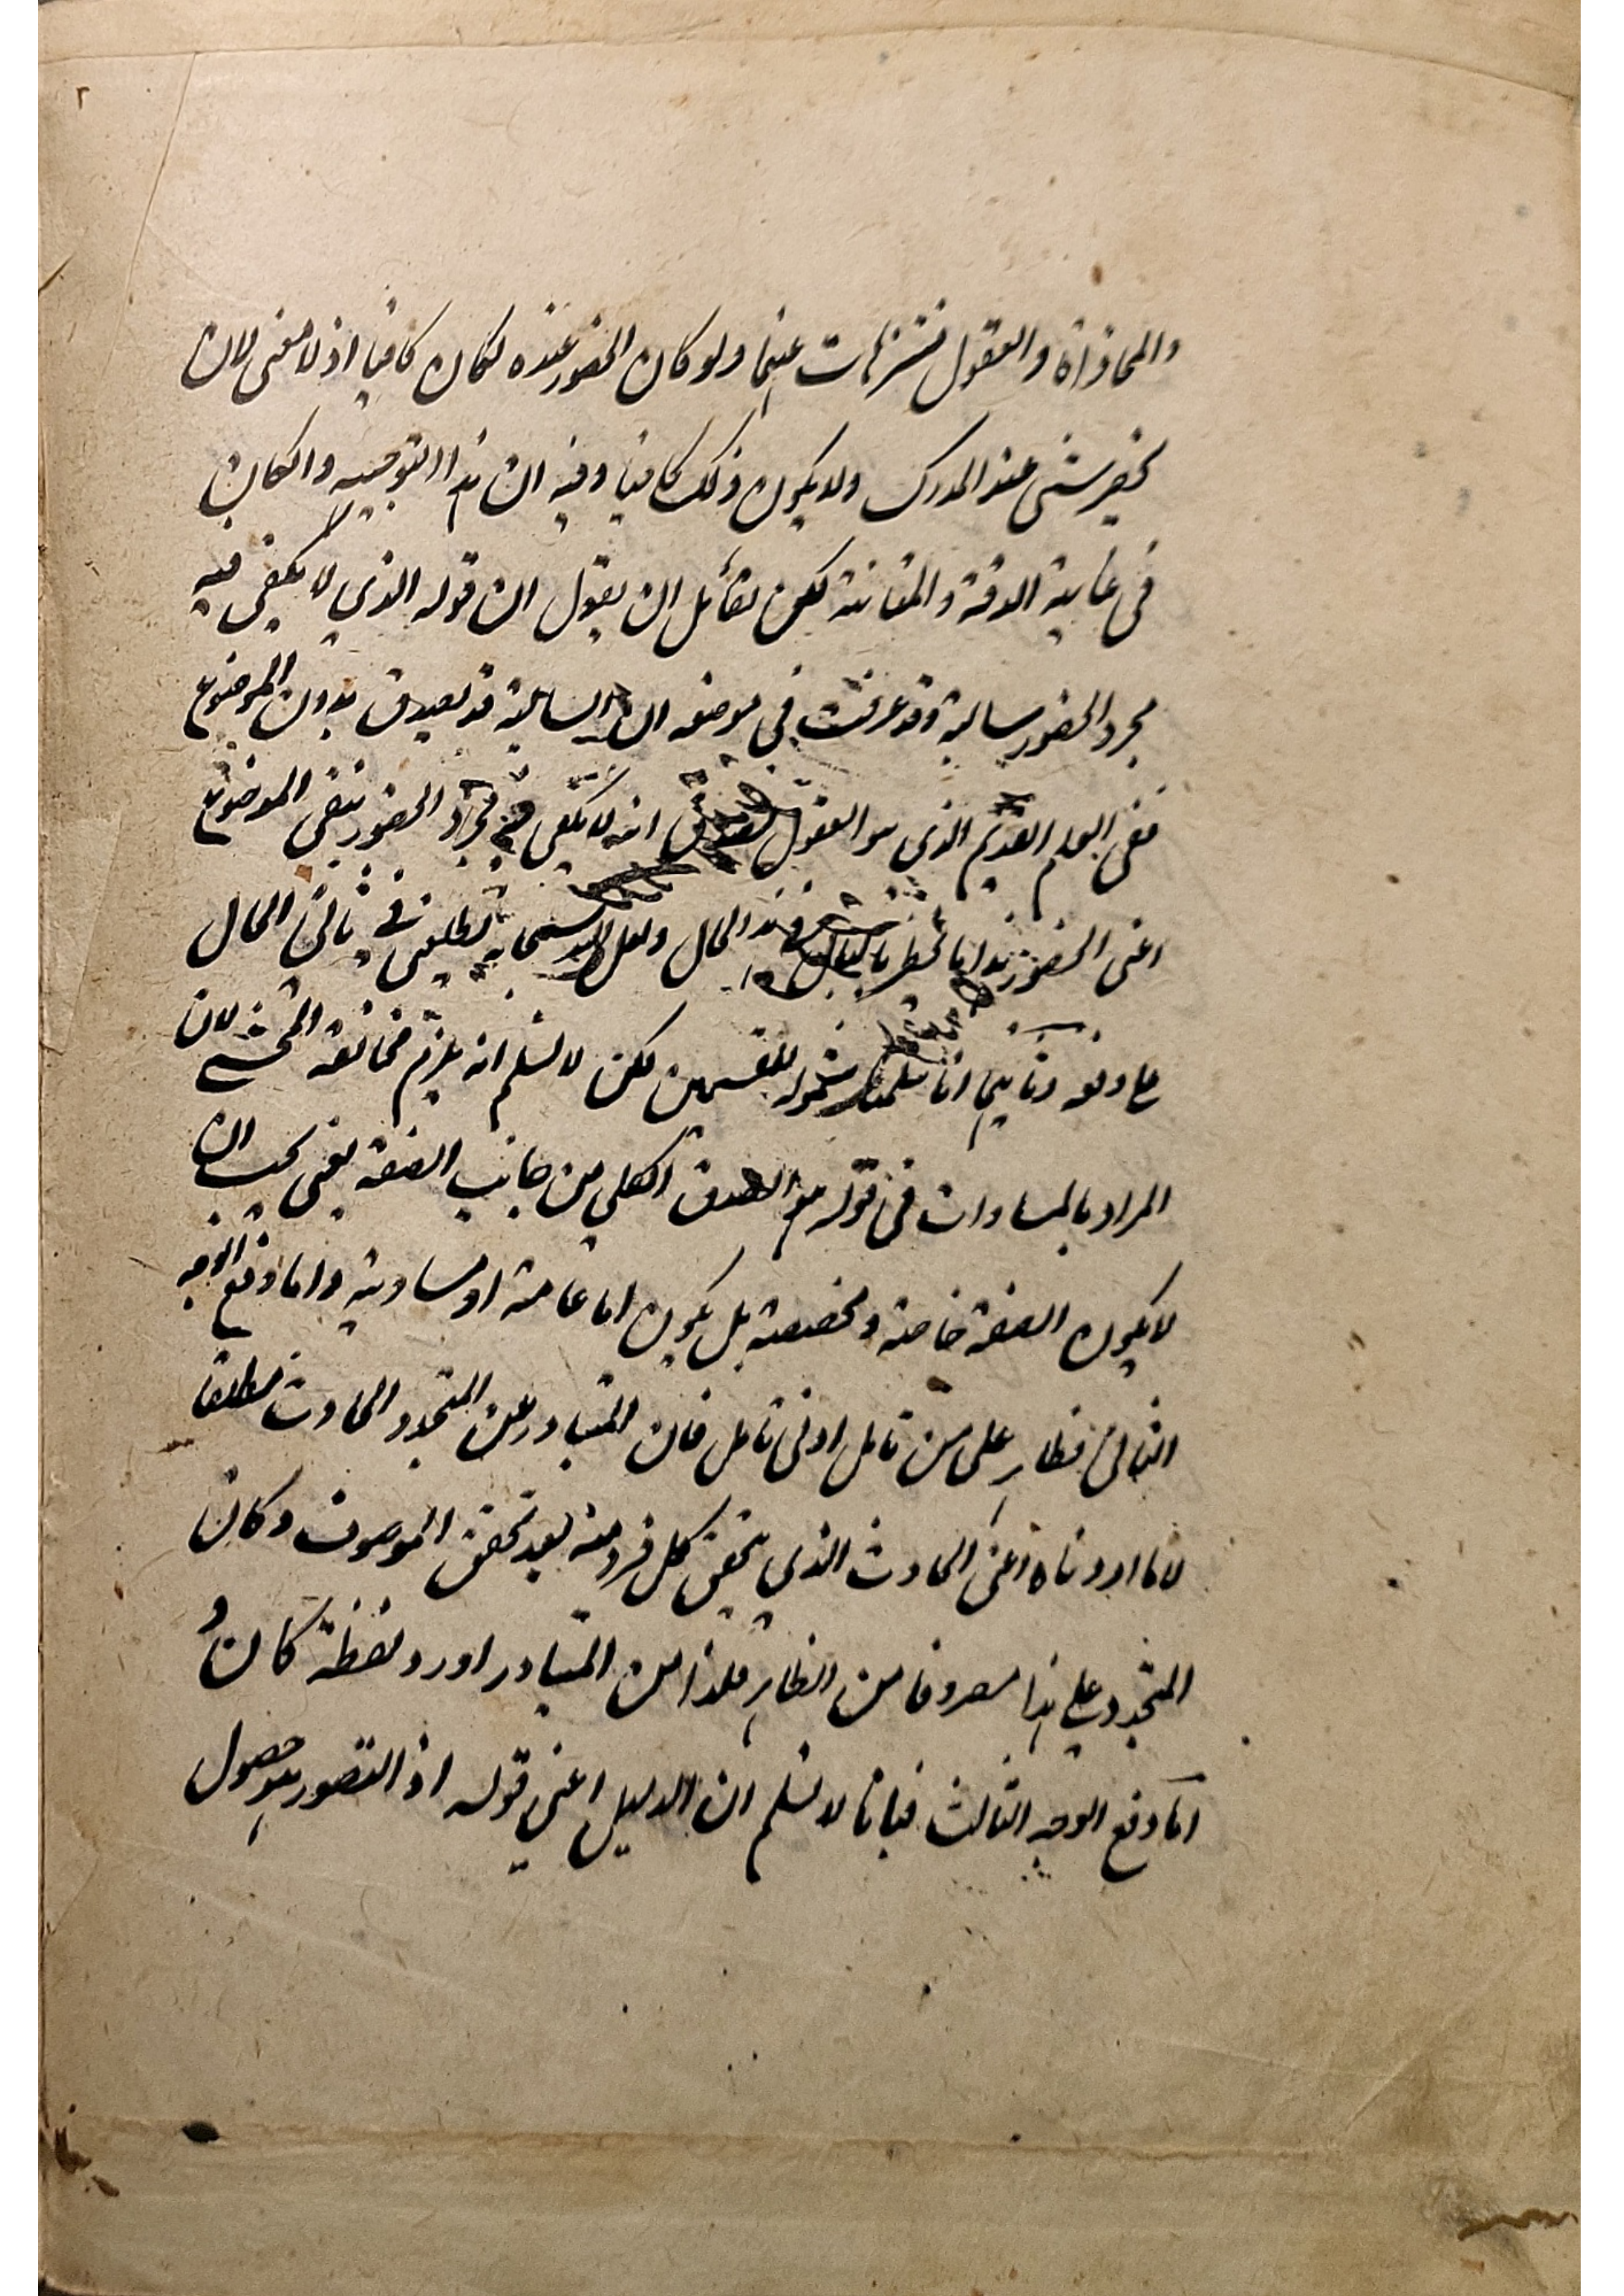 ٢
والمحاذاة والعقول منزهات عنها ولو كان الحضور عنده لكان كافيا اذ لا معنى لان
يحضر شئ عند المدرك ولا يكون ذلك كافيا وفيه ان هذا التوجيه وان كان
فى غاية الدقة والمتانة لكن لقائل ان يقول ان قوله الذي لا يكفى فيه
مجرد الحضور سالبة وقد عرفت فى موضعه ان السالبة قد تصدق بدون الموضوع
ففى العلم القديم الذى هو العقول انه لا يكفى فيه مجرد الحضور ينتفى الموضوع
اعنى الحضور هذا ما يخطر بالبال فى هذا الحال ولعل الله سبحانه يطلعنى فى ثانى الحال
على دفعه وثانيها انا سلمنا شموله للقسمين لكن لا نسلم انه يلزم مخالفة المحشى لان
المراد بالمساوات فى قوله هو الصدق الكلي من جانب الصفة يعنى يجب ان
لا يكون الصفة خاصة ومخصصة بل يكون اما عامة او مساوية واما دفع الوجه
الثانى فظاهر على من تامل ادنى تامل فان المتبادر من المتجدد الحادث مطلقا
لا ما اردناه اعنى الحادث الذي يتحقق كل فرد منه بعد تحقق الموصوف وكان
المتجدد على هذا مصروفا من الظاهر فلذا من المتبادر اورد لفظة كان و
اما دفع الوجه الثالث فبانا لا نسلم ان الدليل اعنى قوله اذ التصور هو حصول